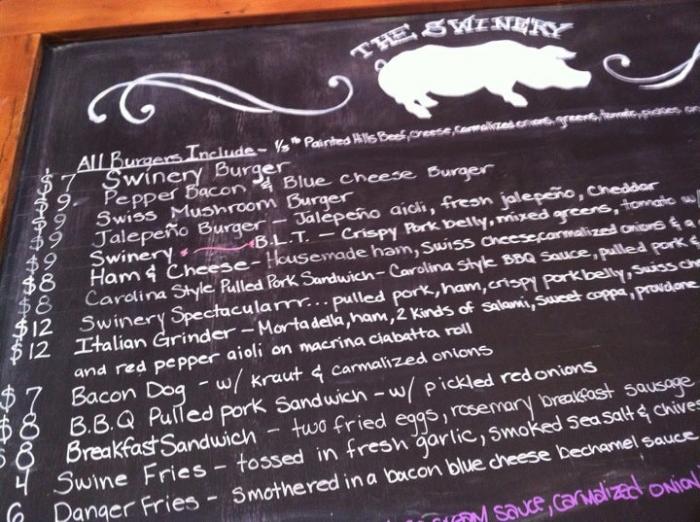 THE SWINERY
All Burgers Include - 1/3 lb Painted Hills Beef, cheese, carmalized onions, greens, tomato, pickles
$ 7 Swinery Burger
$ 9 Pepper Bacon & Blue Cheese Burger
$ 9 Swiss Mushroom Burger
$ 9 Jalepeño Burger - Jalepeño aioli, fresh jalepeño, Cheddar
$ 9 Swinery B.L.T. - Crispy Pork belly, mixed greens, tomato
$ 8 Ham & Cheese - Housemade ham, Swiss Cheese, carmalized onions &
$ 8 Carolina Style Pulled Pork Sandwich - Carolina style BBQ sauce, pulled pork
$12 Swinery Spectacularrr... pulled pork, ham, crispy pork belly, Swiss
$12 Italian Grinder - Mortadella, ham, 2 kinds of salami, sweet coppa, provolone
and red pepper aioli on macrina ciabatta roll
$ 7 Bacon Dog - w/ kraut & carmalized onions
$ 8 B.B.Q Pulled pork Sandwich - w/ pickled red onions
8 Breakfast Sandwich - two fried eggs, rosemary breakfast sausage
4 Swine Fries - tossed in fresh garlic, smoked sea salt & chives
6 Danger Fries - Smothered in a bacon blue cheese bechamel sauce
sauce, carmalized onion